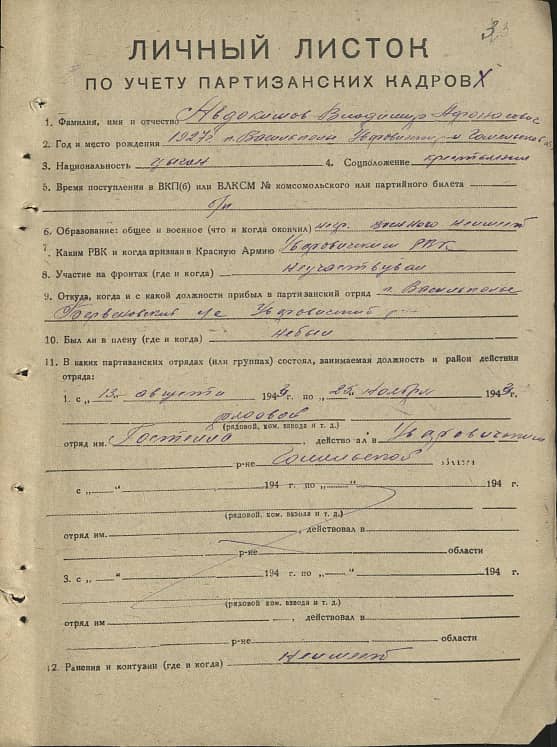 33
ЛИЧНЫЙ ЛИСТОК
ПО УЧЕТУ ПАРТИЗАНСКИХ КАДРОВ
1. Фамилия, имя и отчество Авдокимов Владимир Афонасовис
2. Год и место рождения 1927г п. Васильполье Уваровичск р-н
3. Национальность цыган 4. Соцположение крестьянин
5. Время поступления в ВКП(б) или ВЛКСМ № комсомольского или партийного билета
б/п
6. Образование: общее и военное (что и когда окончил) военного неимеет
7. Каким РВК и когда призван в Красную Армию Уваровичским РВК
8. Участие на фронтах (где и когда) неучаствувал
9. Откуда, когда и с какой должности прибыл в партизанский отряд п. Васильполье
10. Был ли в плену (где и когда) небыл
11. В каких партизанских отрядах (или группах) состоял, занимаемая должность и район действия
отряда:
1. с „13" августа 194 г. по „25" ноября 194 г.
рядовой
(рядовой, ком. взвода и т. д.)
отряд им. Гостелла, действовал в Уваровичском
р-не Гомельской
с „ " 194 г. по „ " 194 г.
(рядовой, ком. взвода и т. д.)
отряд им. , действовал в
р-не области
3. с „ " 194 г. по „ " 194 г.
(рядовой, ком. взвода и т. д.)
отряд им , действовал в
р-не области
12. Ранения и контузии (где и когда) неимеет